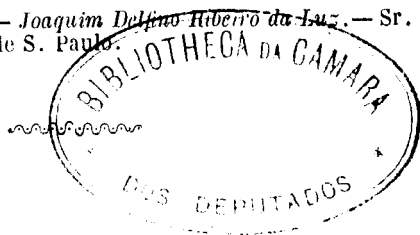 — Joaquim Delfino Ribeiro da Luz. — Sr.
de S. Paulo.
BIBLIOTHECA DA CAMARA
DOS DEPUTADOS